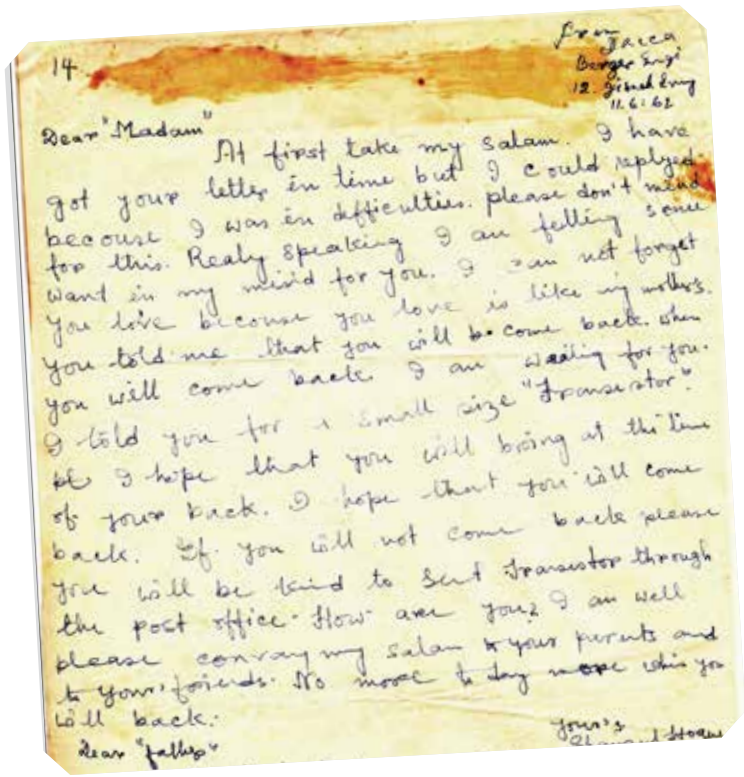 14
From
Dacca
12.
11.6.62
Dear "Madam"
At first take my salam. I have
got your letter in time but I could replyed
becouse I was in difficulties. please don't mind
for this. Realy speaking I am felling some
want in my mind for you. I can not forget
you love becouse you love is like my mother's.
you told me that you will be come back. when
you will come back. I am waiting for you.
I told you for a small size "Transistor".
I hope that you will bring at the time
of your back. I hope that you will come
back. If you will not come back please
you will be kind to sent Transistor through
the post office. How are you? I am well
please convay my salam to your perents and
to your friends. No more to day more you
will back.
your's
Dear "father"